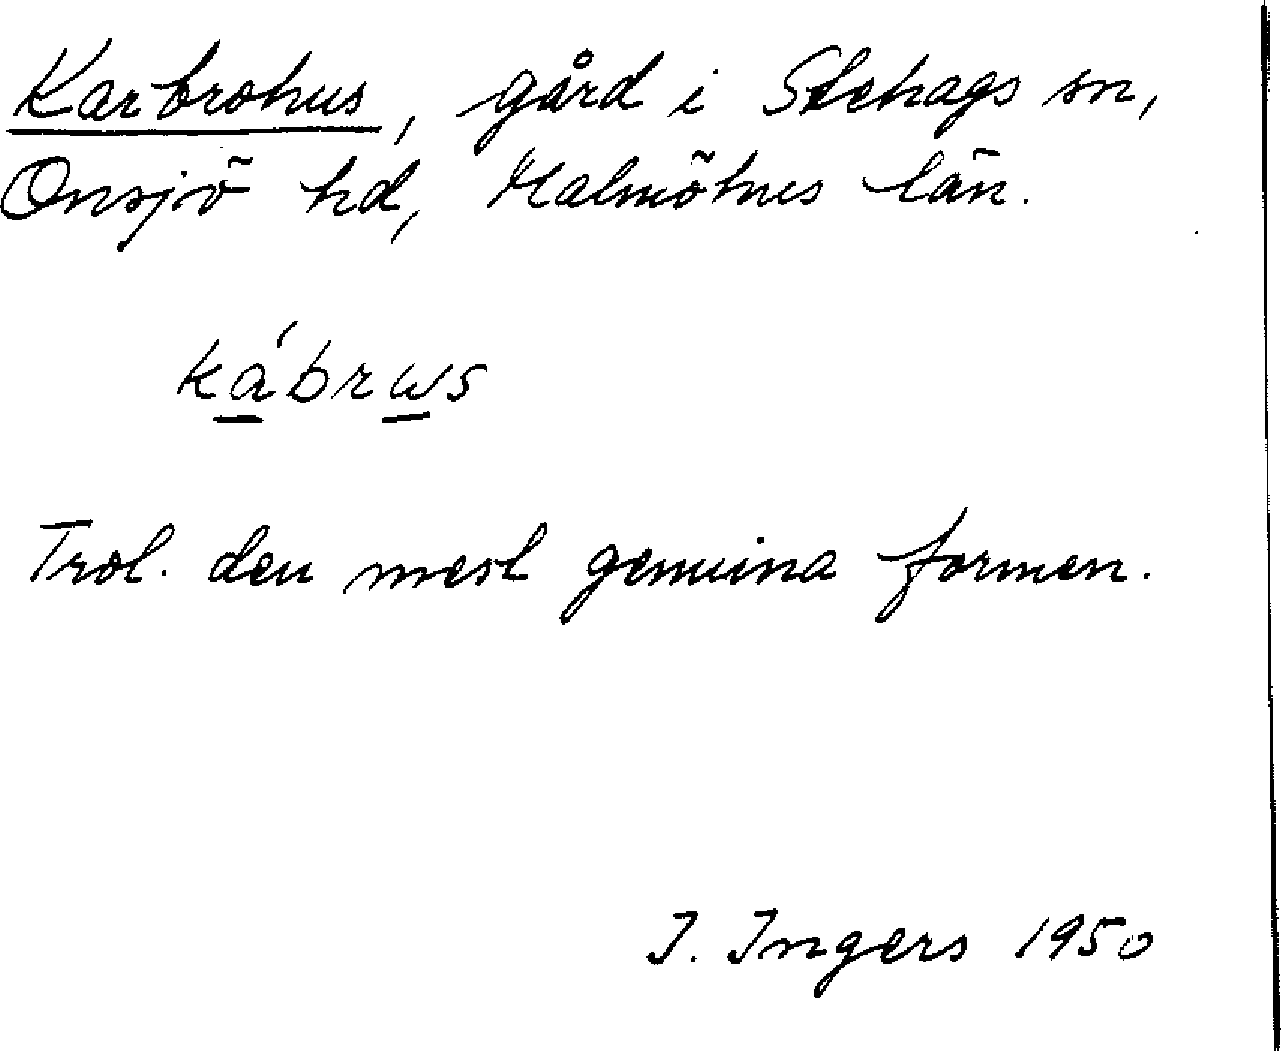 Karbrohus, gård i Stehags sn,
Onsjö hd, Malmöhus län.
ka̱´brɯ̱s
Trol. den mest genuina formen.
I. Ingers 1950